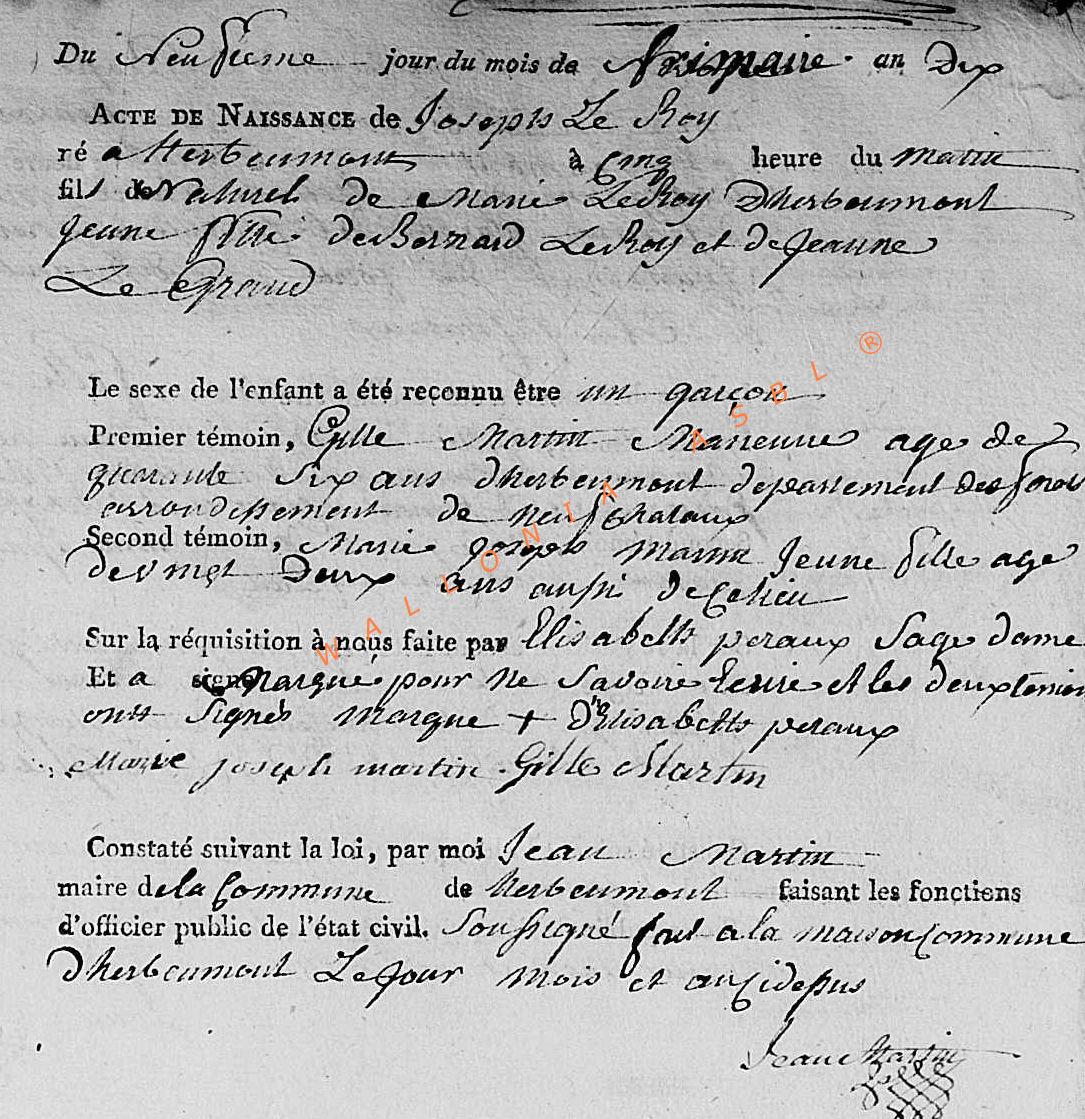 Du Neufieme jour du mois de frimaire. an Dix
ACTE DE NAISSANCE de Joseph Le Roy
né a Herbeumont à Cinq heure du matin
fils de Naturel de Marie LeRoy Dherbeumont
Jeune fille de Bernard LeRoy et de Jeanne
Le Grand
Le sexe de l'enfant a été reconnu être un garçon
Premier témoin, Gille Martin age de
quarante Six ans dherbeumont departement des forets
arrondissement de neufchataux
Second témoin, Marie joseph martin Jeune fille age
de vingt Deux ans aussi de Ce lieu
Sur la réquisition à nous faite par Elisabeth peraux Sage dame
Et a Marque pour ne Savoire Ecrire et les deux temoin
ont Signés marque + d'Elisabeth peraux
Marie joseph martin Gille Martin
Constaté suivant la loi, par moi Jean Martin
maire de la Commune de herbeumont faisant les fonctions
d'officier public de l'état civil. Soussigné fait a la maison Commune
dherbeumont Le Jour mois et an Cidessus
Jean Martin
WALLONIA ASBL ®